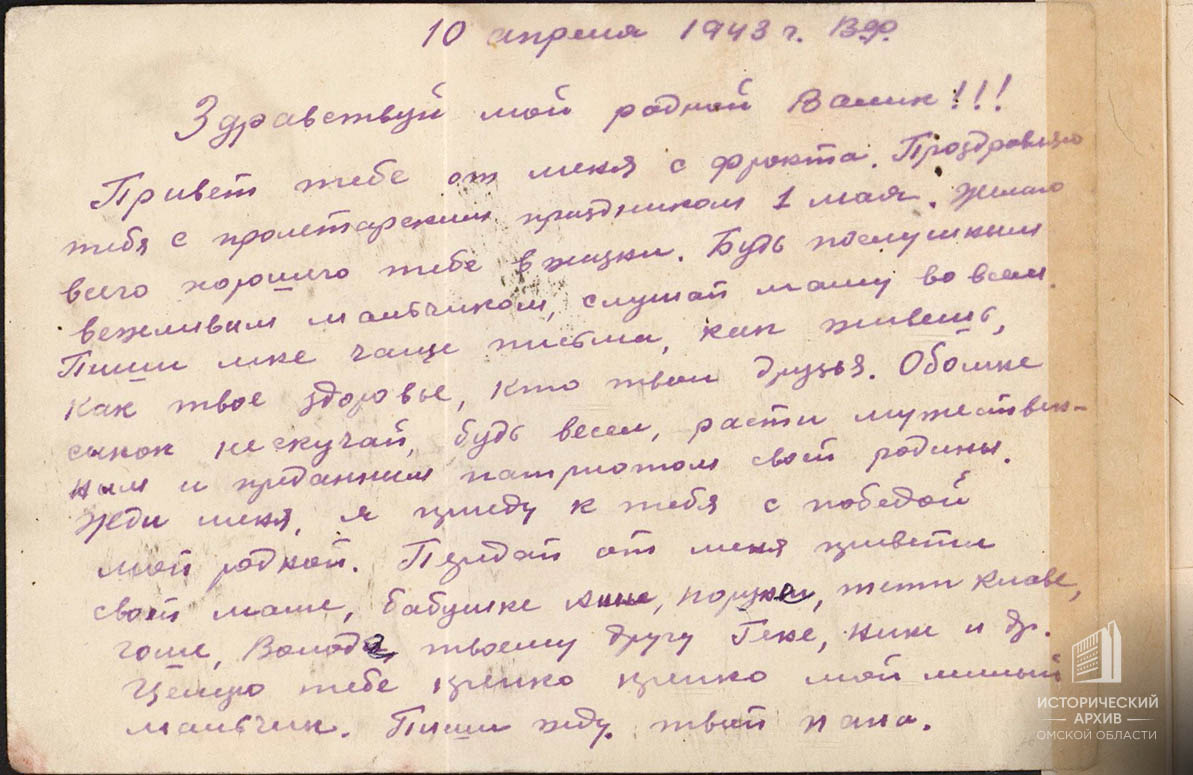 10 апреля 1943 г. Вдр.
Здравствуй мой родной Валик!!!
Привет тебе от меня с фронта. Проздравляю
тебя с пролетарским праздником 1 мая. Желаю
всего хорошего тебе в жизни. Будь послушным
вежливым мальчиком, слушай маму во всем.
Пиши мне чаще письма, как живешь,
как твое здоровье, кто твои друзья. Обо мне
сынок не скучай, будь весел, расти мужествен-
ным и преданным патриотом своей родины.
Жди меня, я приеду к тебя с победой
мой родной. Передай от меня приветы
своей маме, бабушке Анне, тети Клаве,
гоше, Володе, твоему другу Гене, Нине и др.
Целую тебе крепко крепко мой милый
мальчик. Пиши жду. твой папа.
ИСТОРИЧЕСКИЙ
АРХИВ
ОМСКОЙ ОБЛАСТИ